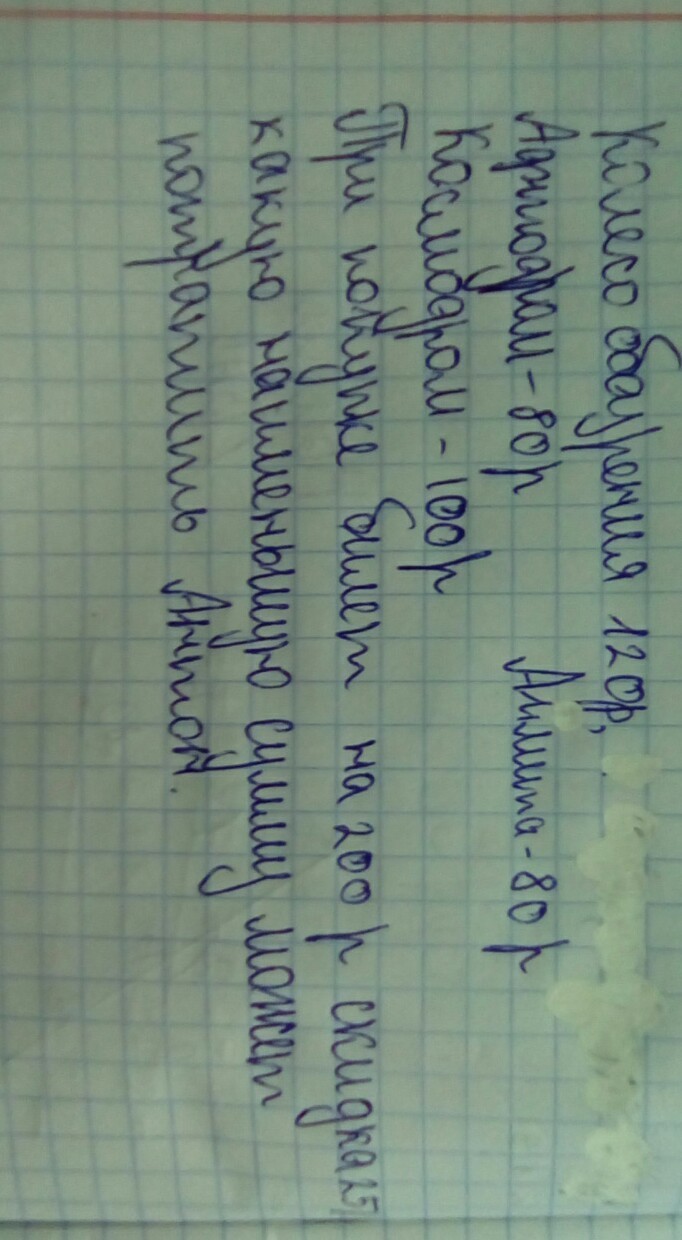 Колесо обазрения 120р,
Автодром - 80р
Космодром - 100р
При покупке билет на 200 р скидка 25%
какую наименьшую сумму может
потратить Антон.